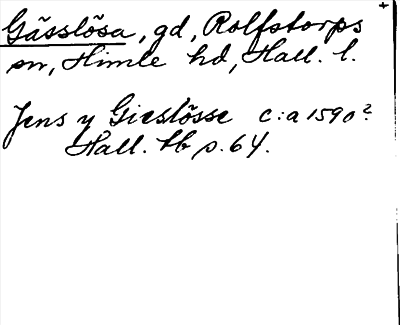 Gässlösa, gd, Rolfstorps
sn, Himle hd, Hall. l.
Jens y Gieslösse c:a 1590?
Hall. tb p. 64.